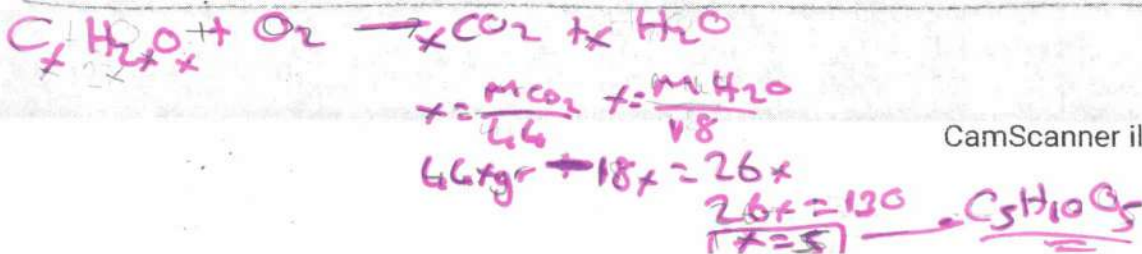 CxH2xOx + O2 → xCO2 + x H2O
x = mCO2/44 x = mH2O/18
CamScanner il
44xgr - 18x = 26x
26x = 130
x = 5 C5H10O5